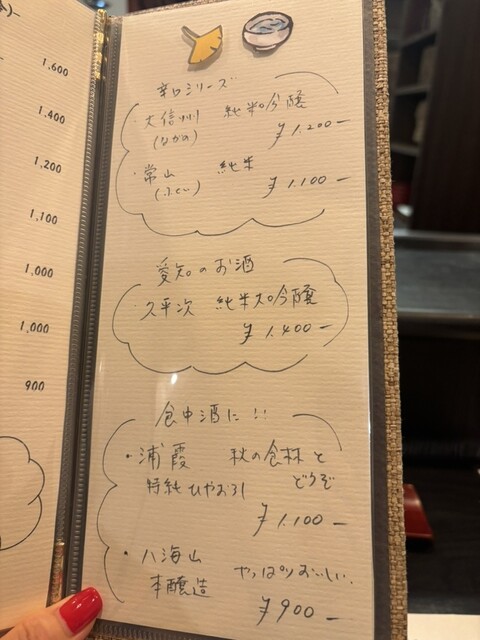 )-
1,600
1,400
1,200
1,100
1,000
1,000
900
辛口シリーズ
・大信州 純米吟醸
(ながの) ¥1.200-
・常山 純米
(ふくい) ¥1.100-
愛知のお酒
・久平次 純米大吟醸
¥1.400-
食中酒に!!
・浦霞 秋の食材と
特純ひやおろし どうぞ
¥1.100-
・八海山 やっぱりおいしい..
本醸造
¥900-